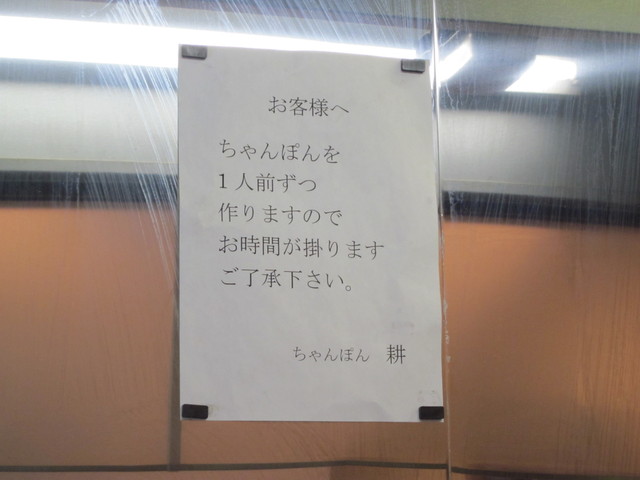 お客様へ
ちゃんぽんを
1人前ずつ
作りますので
お時間が掛ります
ご了承下さい。
ちゃんぽん 耕